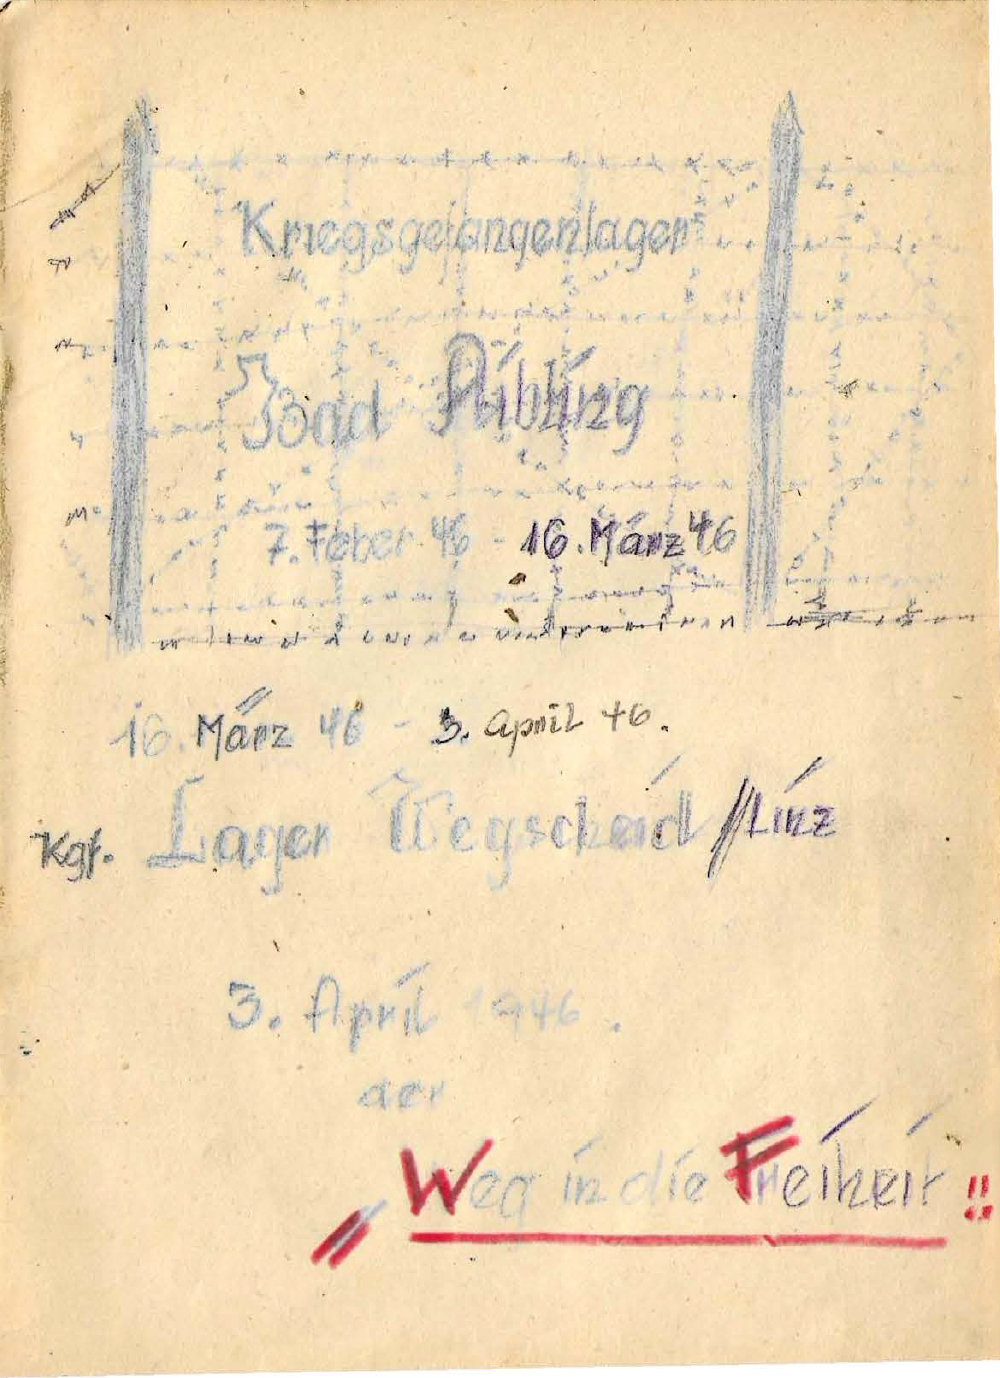 Kriegsgefangenlager
Bad Aibling
7. Feber 46 - 16. März 46
16. März 46 - 3. April 46.
Kgf. Lager Wegscheid / Linz
3. April 1946.
der
„Weg in die Freiheit!!